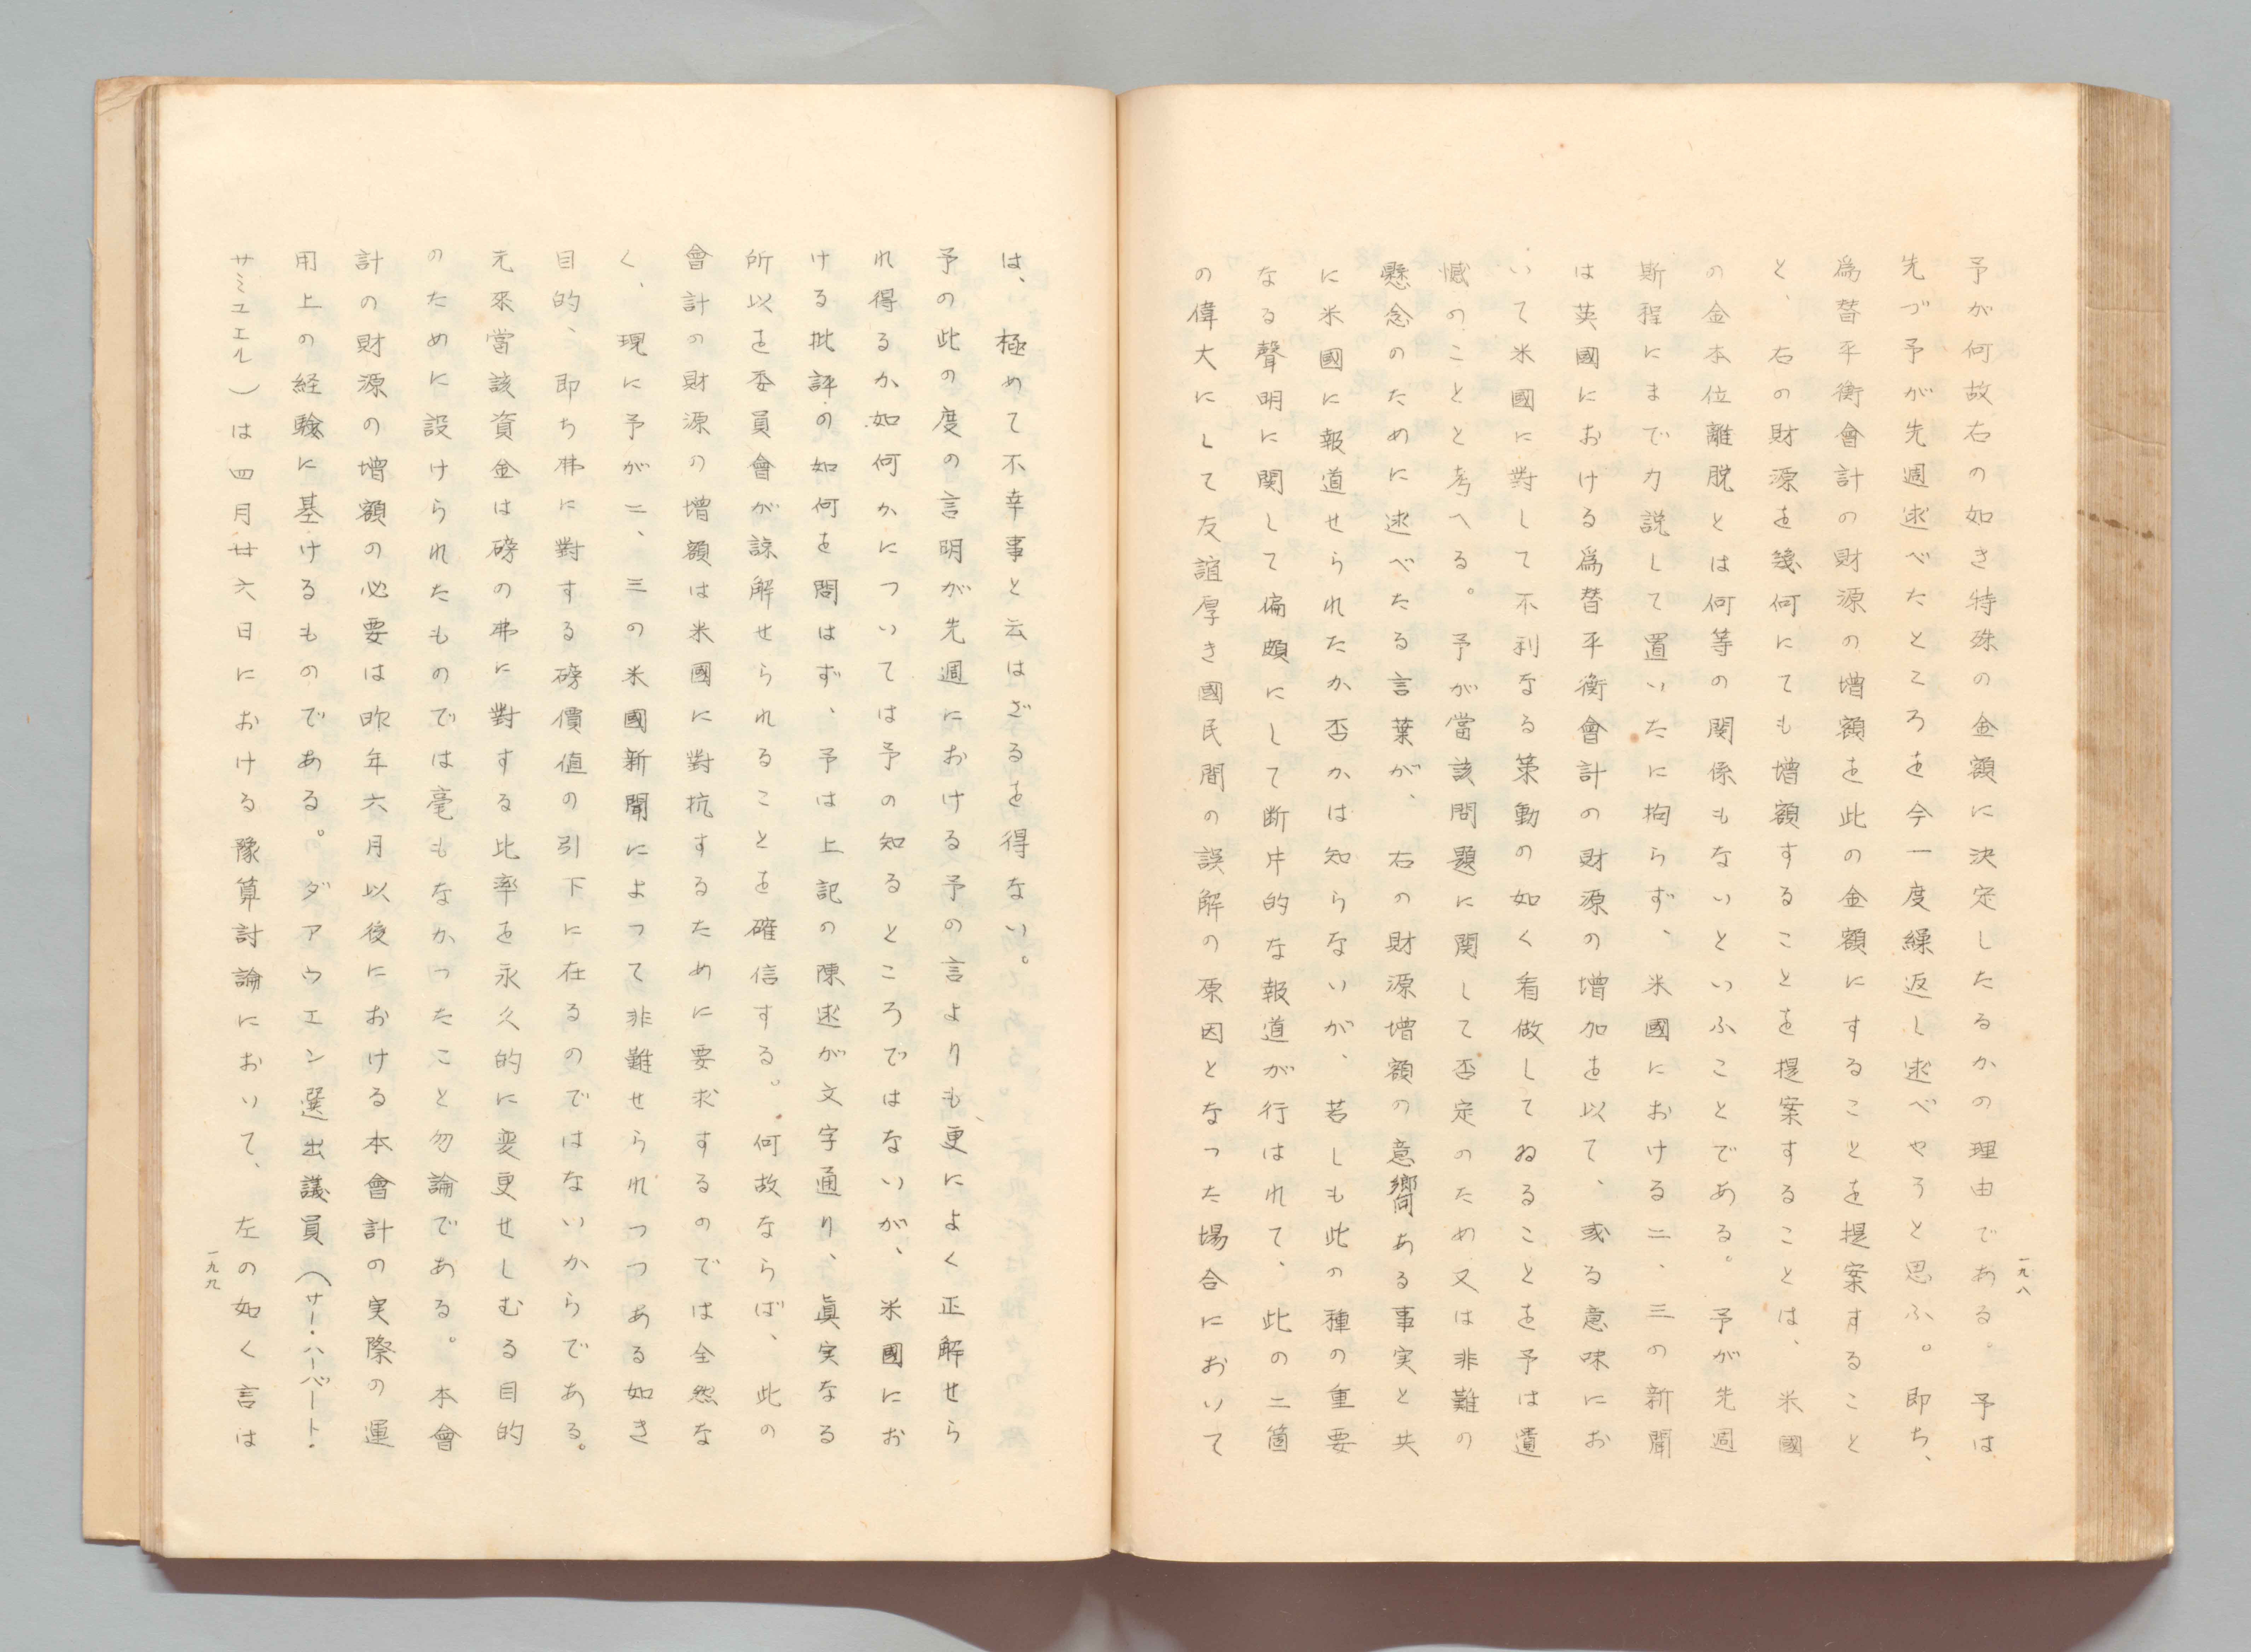 予が何故右の如き特殊の金額に決定したるかの理由である。予は
先づ予が先週述べたところを今一度繰返し述べやうと思ふ。即ち、
為替平衡會計の財源の増額を此の金額にすることを提案すること
と、右の財源を幾何にても増額することを提案することは、米國
の金本位離脱とは何等の関係もないといふことである。予が先週
斯程にまで力説して置いたに拘らず、米國における二、三の新聞
は英國における為替平衡會計の財源の増加を以て、或る意味にお
いて米國に對して不利なる策動の如く看做してゐることを予は遺
憾のことと考へる。予が當該問題に関して否定のため又は非難の
懸念のために述べたる言葉が、右の財源増額の意嚮ある事実と共
に米國に報道せられたか否かは知らないが、若しも此の種の重要
なる聲明に関して偏頗にして断片的な報道が行はれて、此の二箇
の偉大にして友誼厚き國民間の誤解の原因となつた場合において
一九八
は、極めて不幸事と云はざるを得ない。
予の此の度の言明が先週における予の言よりも、更によく正解せら
れ得るか如何かについては予の知るところではないが、米國にお
ける批評の如何を問はず、予は上記の陳述が文字通り、眞実なる
所以を委員會が諒解せられることを確信する。何故ならば、此の
會計の財源の増額は米國に對抗するために要求するのでは全然な
く、現に予が二、三の米國新聞によつて非難せられつつある如き
目的、即ち弗に對する磅價値の引下に在るのではないからである。
元來當該資金は磅の弗に對する比率を永久的に変更せしむる目的
のために設けられたものでは毫もなかつたこと勿論である。本會
計の財源の増額の必要は昨年六月以後における本會計の実際の運
用上の経験に基けるものである。ダアウエン選出議員（サー・ハーバート・
サミユエル）は四月廿六日における豫算討論において、左の如く言は
一九九